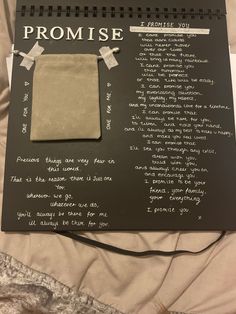 PROMISE
ONE FOR YOU
ONE FOR ME
Precious things are very few in
this world.
That is the reason there is just one
You.
Wherever we go,
whatever we do,
You'll always be there for me
ill always be there for you.
I PROMISE YOU
I can't promise you
that dark clouds
will never hover
over our time
or that the future
will bring us many rainbows
I can't promise you
that tomorrow
will be perfect
or that life will be easy
I can promise you
my everlasting devotion
my loyalty, my respect
and my unconditional love for a lifetime
I can promise that
ill always be there for you,
to listen and hold your hand,
and ill always do my best to make u happy
and make u feel loved
I can promise that
I'll see you through any crisis,
dream with you,
build with you,
and always cheer you on
and encourage you
I promise to be your
friend, your family,
your everything.
I promise you